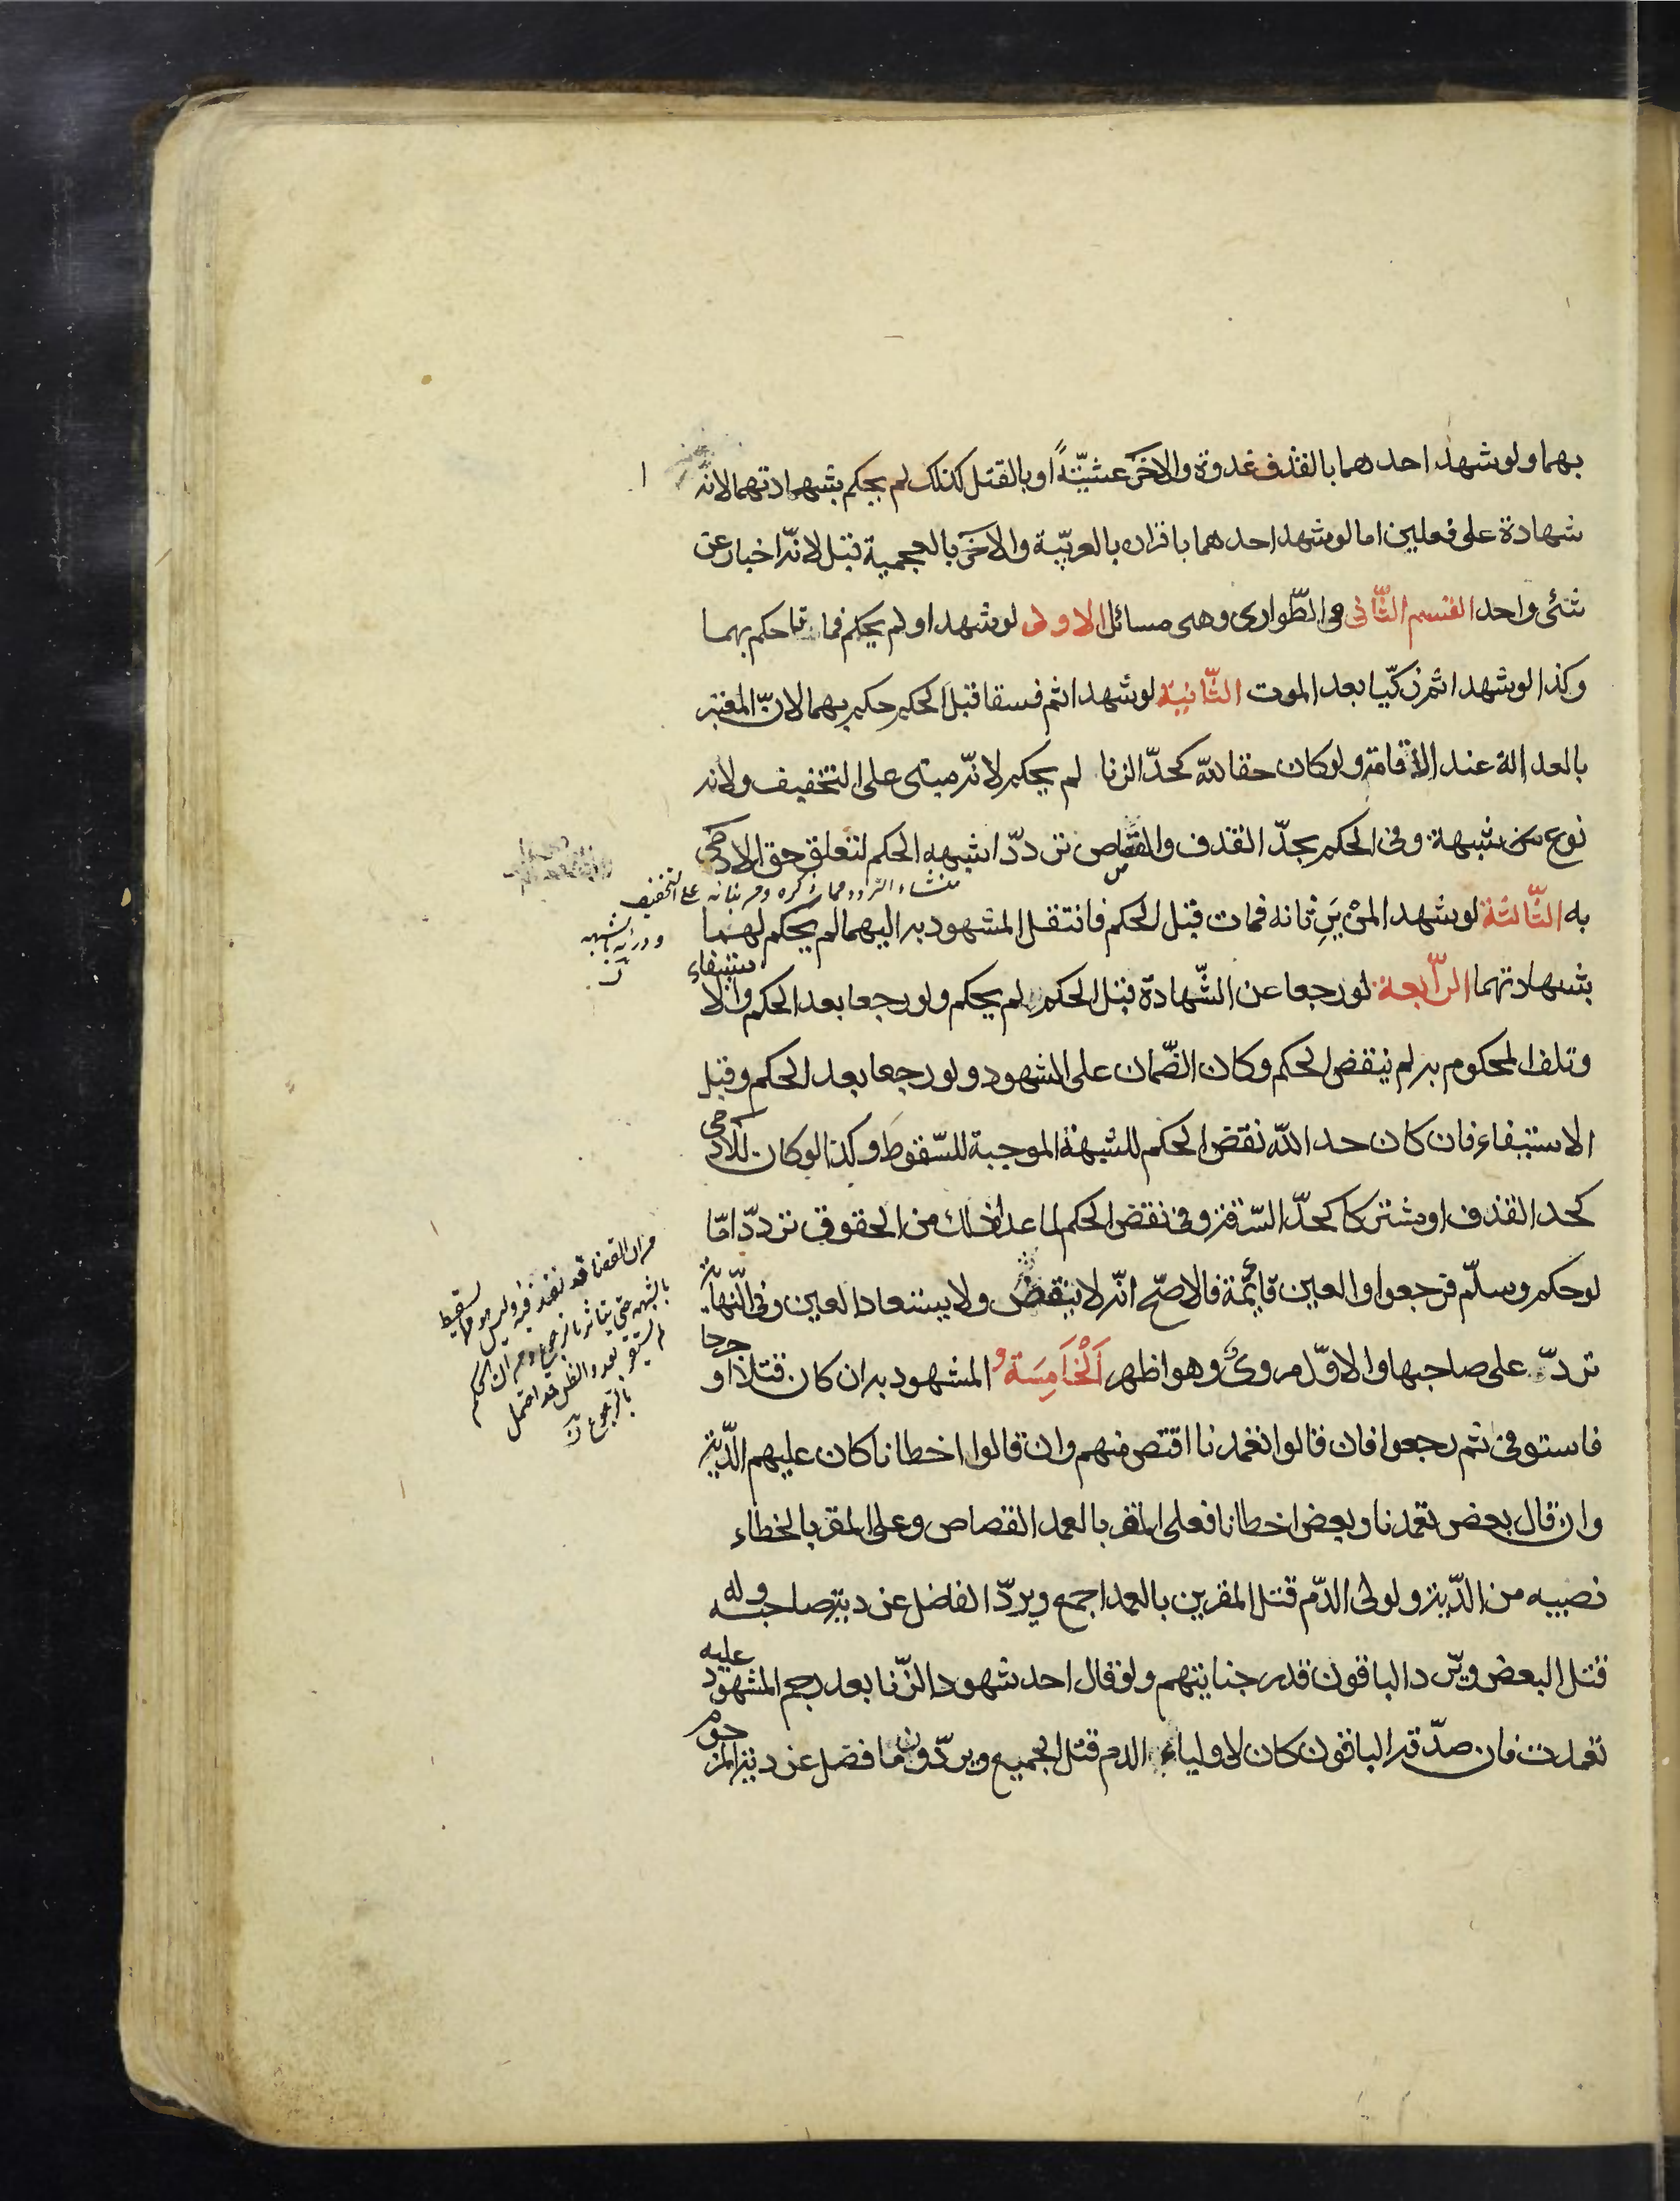 بهما ولو شهد احدهما بالقذف غدوة والاخر عشيّةً او بالقتل كذلك لم يحكم بشهادتهما لانه
شهادة على فعلين اما لو شهد احدهما باقرار بالعربيّة والاخر بالعجمية قبل لانّه اخبار عن
شئ واحد القسم الثّانى فى الطّوارى وهى مسائل الاولى لو شهدا ولم يحكم فماتا حكم بهما
وكذا لو شهدا ثم زكّيا بعد الموت الثّانية لو شهدا ثم فسقا قبل الحكم حكم بهما لانّ المعتبر
بالعدالة عند الاقامة ولو كان حقا لله كحدّ الزنا لم يحكم لانّه مبنى على التخفيف ولانه
نوع من شبهة وفى الحكم بحدّ القذف والقصاص تردّد اشبهه الحكم لتعلق حق الادمى
منشاء التردد مما ذكره ومن بنائه على التخفيف
ودرئه بالشبهه
به الثّالثة لو شهدا لمن يَرِثانه فمات قبل الحكم فانتقل المشهود به اليهما لم يحكم لهما
بشهادتهما الرّابعة لو رجعا عن الشّهادة قبل الحكم لم يحكم ولو رجعا بعد الحكم والاستيفاء
وتلف المحكوم به لم ينقض الحكم وكان الضّمان على الشهود ولو رجعا بعد الحكم وقبل
الاستيفاء فان كان حد الله نقض الحكم للشبهة الموجبة للسّقوط وكذا لو كان للادمى
كحد القذف او مشتركا كحدّ السّرقة وفى نقض الحكم لما عدا ذلك من الحقوق تردّد امّا
لو حكم وسلّم فرجعوا والعين قائمة فالاصحّ انّه لا ينقض ولا يستعاد العين وفى النّهاية
تردّ على صاحبها والاوّل مروىّ وهو اظهر اَلْخَامِسَة و المشهود به ان كان قتلا او جرحا
فاستوفى ثم رجعوا فان قالوا تعمدنا اقتص منهم وان قالوا اخطانا كان عليهم الدّية
وان قال بعض تعمدنا وبعض اخطانا فعلى المقر بالعمد القصاص وعلى المقر بالخطاء
نصيبه من الدّية ولولى الدّم قتل المقرين بالعمد اجمع ويردّ الفاضل عن دية صاحبه وله
قتل البعض ويردّ الباقون قدر جنايتهم ولو قال احد شهود الزّنا بعد رجم المشهود عليه
تعمدت فان صدّقه الباقون كان لاولياء الدم قتل الجميع ويردّون ما فضل عن دية المرجوم